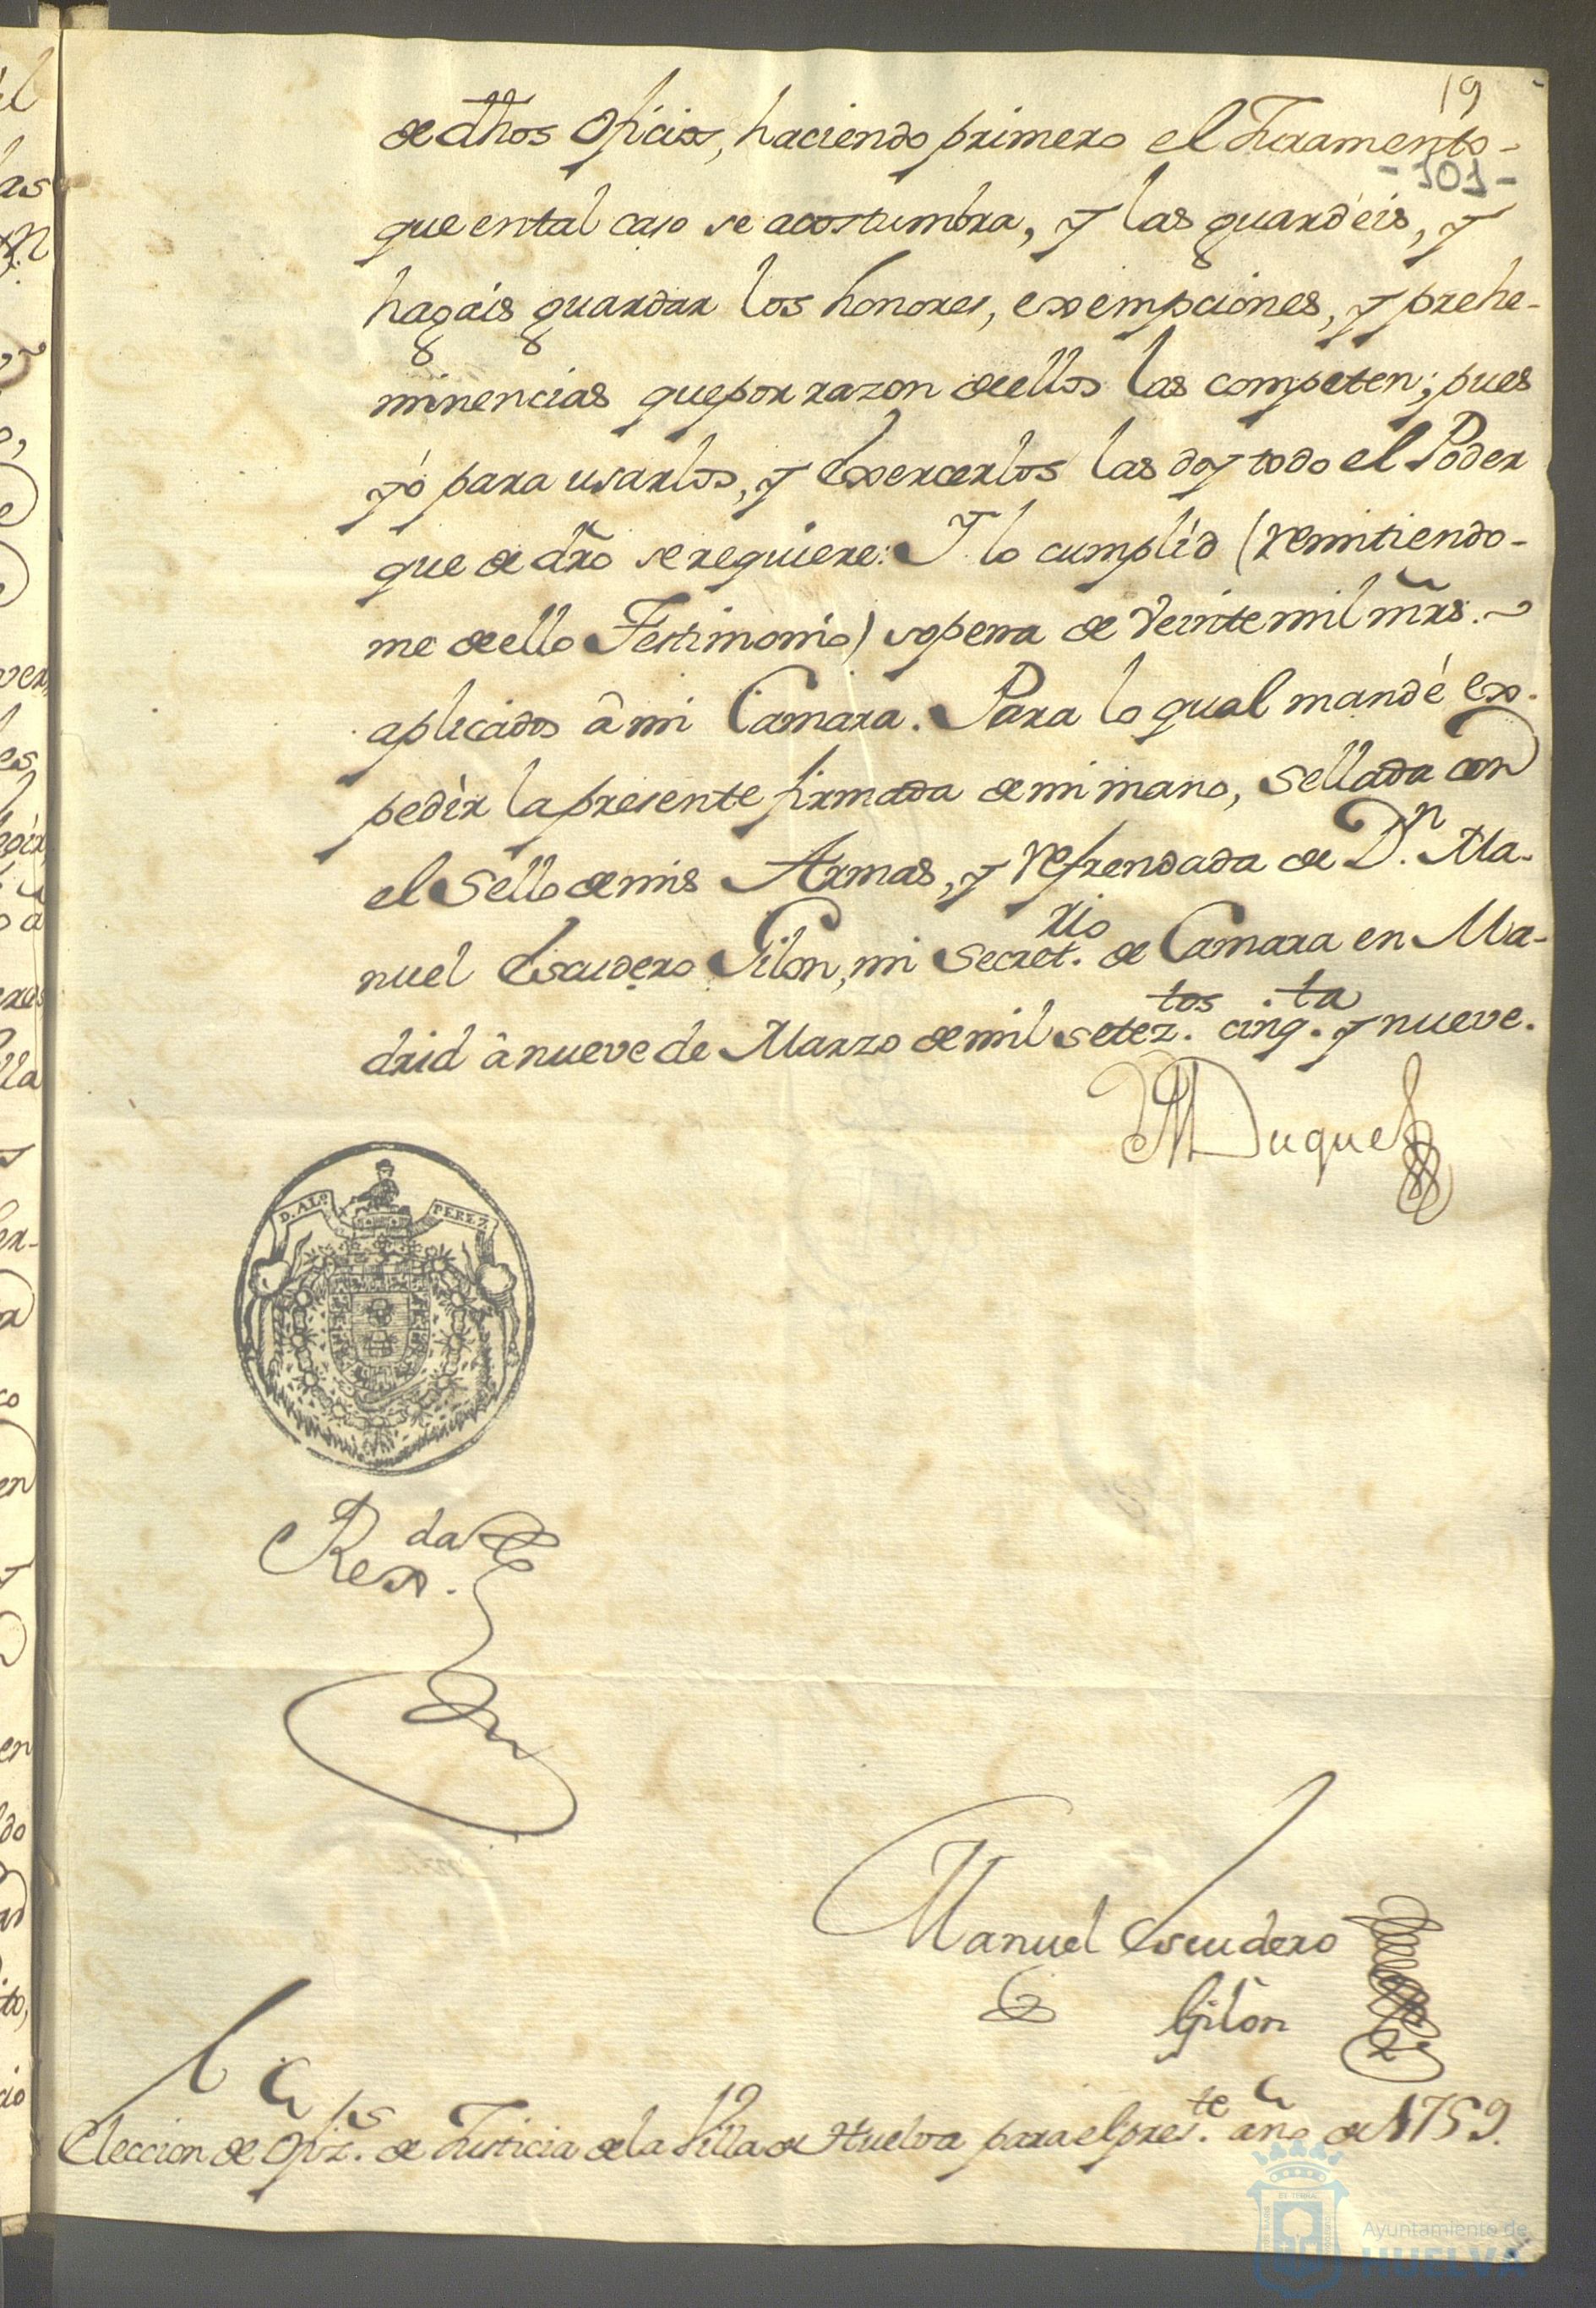 19
de dhos Oficios, haciendo primero el Juramento-
-101-
que en tal caso se acostumbra, y las guardéis, y
hagáis guardar los honores, exempciones, y prehe-
minencias que por razon de ellos las competen; pues
yó para usarlos, y Exercerlos las doy todo el Poder
que de dr̃o se requiere: Y lo cumplíd (remitiendo-
me de ello Testimonio) sopena de Veinte mil mr̃s.
aplicados â mi Camara. Para lo qual mandé ex-
pedìr la presente firmada de mi mano, sellada con
el Sello de mis Armas, y refrendada de Dn. Ma-
nuel Escudero Gilon, mi Secret.rio de Camara en Ma-
drid â nueve de Marzo de mil setez.tos cinq.ta y nueve.
Duque
D. ALº. PEREZ
Rex.da
Manuel Escudero
Gilón
Eleccion de Ofiz.s de Justicia de la Villa de Huelva para el pres.te año de 1759.
Ayuntamiento de
HUELVA